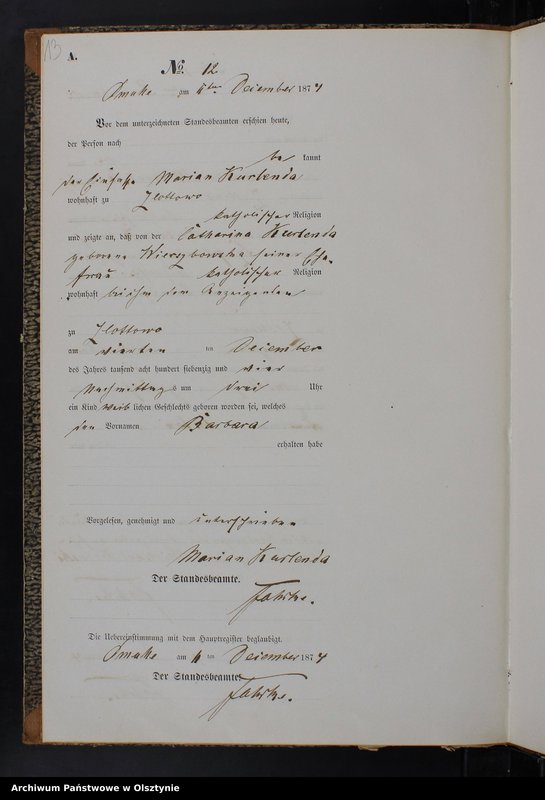 13
A.
No. 12
am December 1874
Vor dem unterzeichneten Standesbeamten erschien heute,
der Person nach
be kannt
der Einsasse Marian Kurlenda
wohnhaft zu Zlottowo
katholischer Religion
und zeigte an, daß von der Catharina Kurlenda
geborene Wierzbowska seiner Ehe-
frau katholischer Religion
wohnhaft bei ihm dem Anzeigenden
zu Zlottowo
am vierten ten December
des Jahres tausend acht hundert siebenzig und vier
Nachmittags um drei Uhr
ein Kind weib lichen Geschlechts geboren worden sei, welches
den Vornamen Barbara
erhalten habe
Vorgelesen, genehmigt und unterschrieben
Marian Kurlenda
Der Standesbeamte.
Die Uebereinstimmung mit dem Hauptregister beglaubigt.
am ten December 1874
Der Standesbeamte
Archiwum Państwowe w Olsztynie